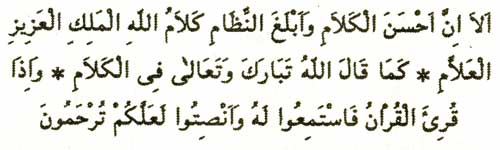 اَلاَ اِنَّ اَحْسَنَ الْكَلاَمِ وَاَبْلَغَ النَّظَامِ كَلاَمُ اللّٰهِ الْمَلِكِ الْعَزِيزِ
الْعَلاَّمِ * كَمَا قَالَ اللّٰهُ تَبَارَكَ وَتَعَالٰى فِى الْكَلاَمِ * وَاِذَا
قُرِئَ الْقُرْاٰنُ فَاسْتَمِعُوا لَهُ وَاَنْصِتُوا لَعَلَّكُمْ تُرْحَمُونَ